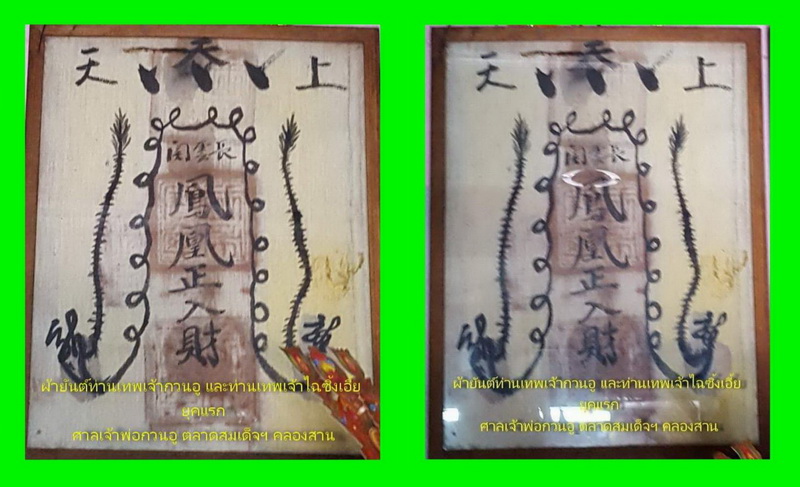 天 上
雲長
鳳
凰
正
入
財
ผ้ายันต์ท่านเทพเจ้ากวนอู และท่านเทพเจ้าไฉ่ซิ้งเอี้ย
ยุคแรก
ศาลเจ้าพ่อกวนอู ตลาดสมเด็จฯ คลองสาน
天 上
雲長
鳳
凰
正
入
財
ผ้ายันต์ท่านเทพเจ้ากวนอู และท่านเทพเจ้าไฉ่ซิ้งเอี้ย
ยุคแรก
ศาลเจ้าพ่อกวนอู ตลาดสมเด็จฯ คลองสาน